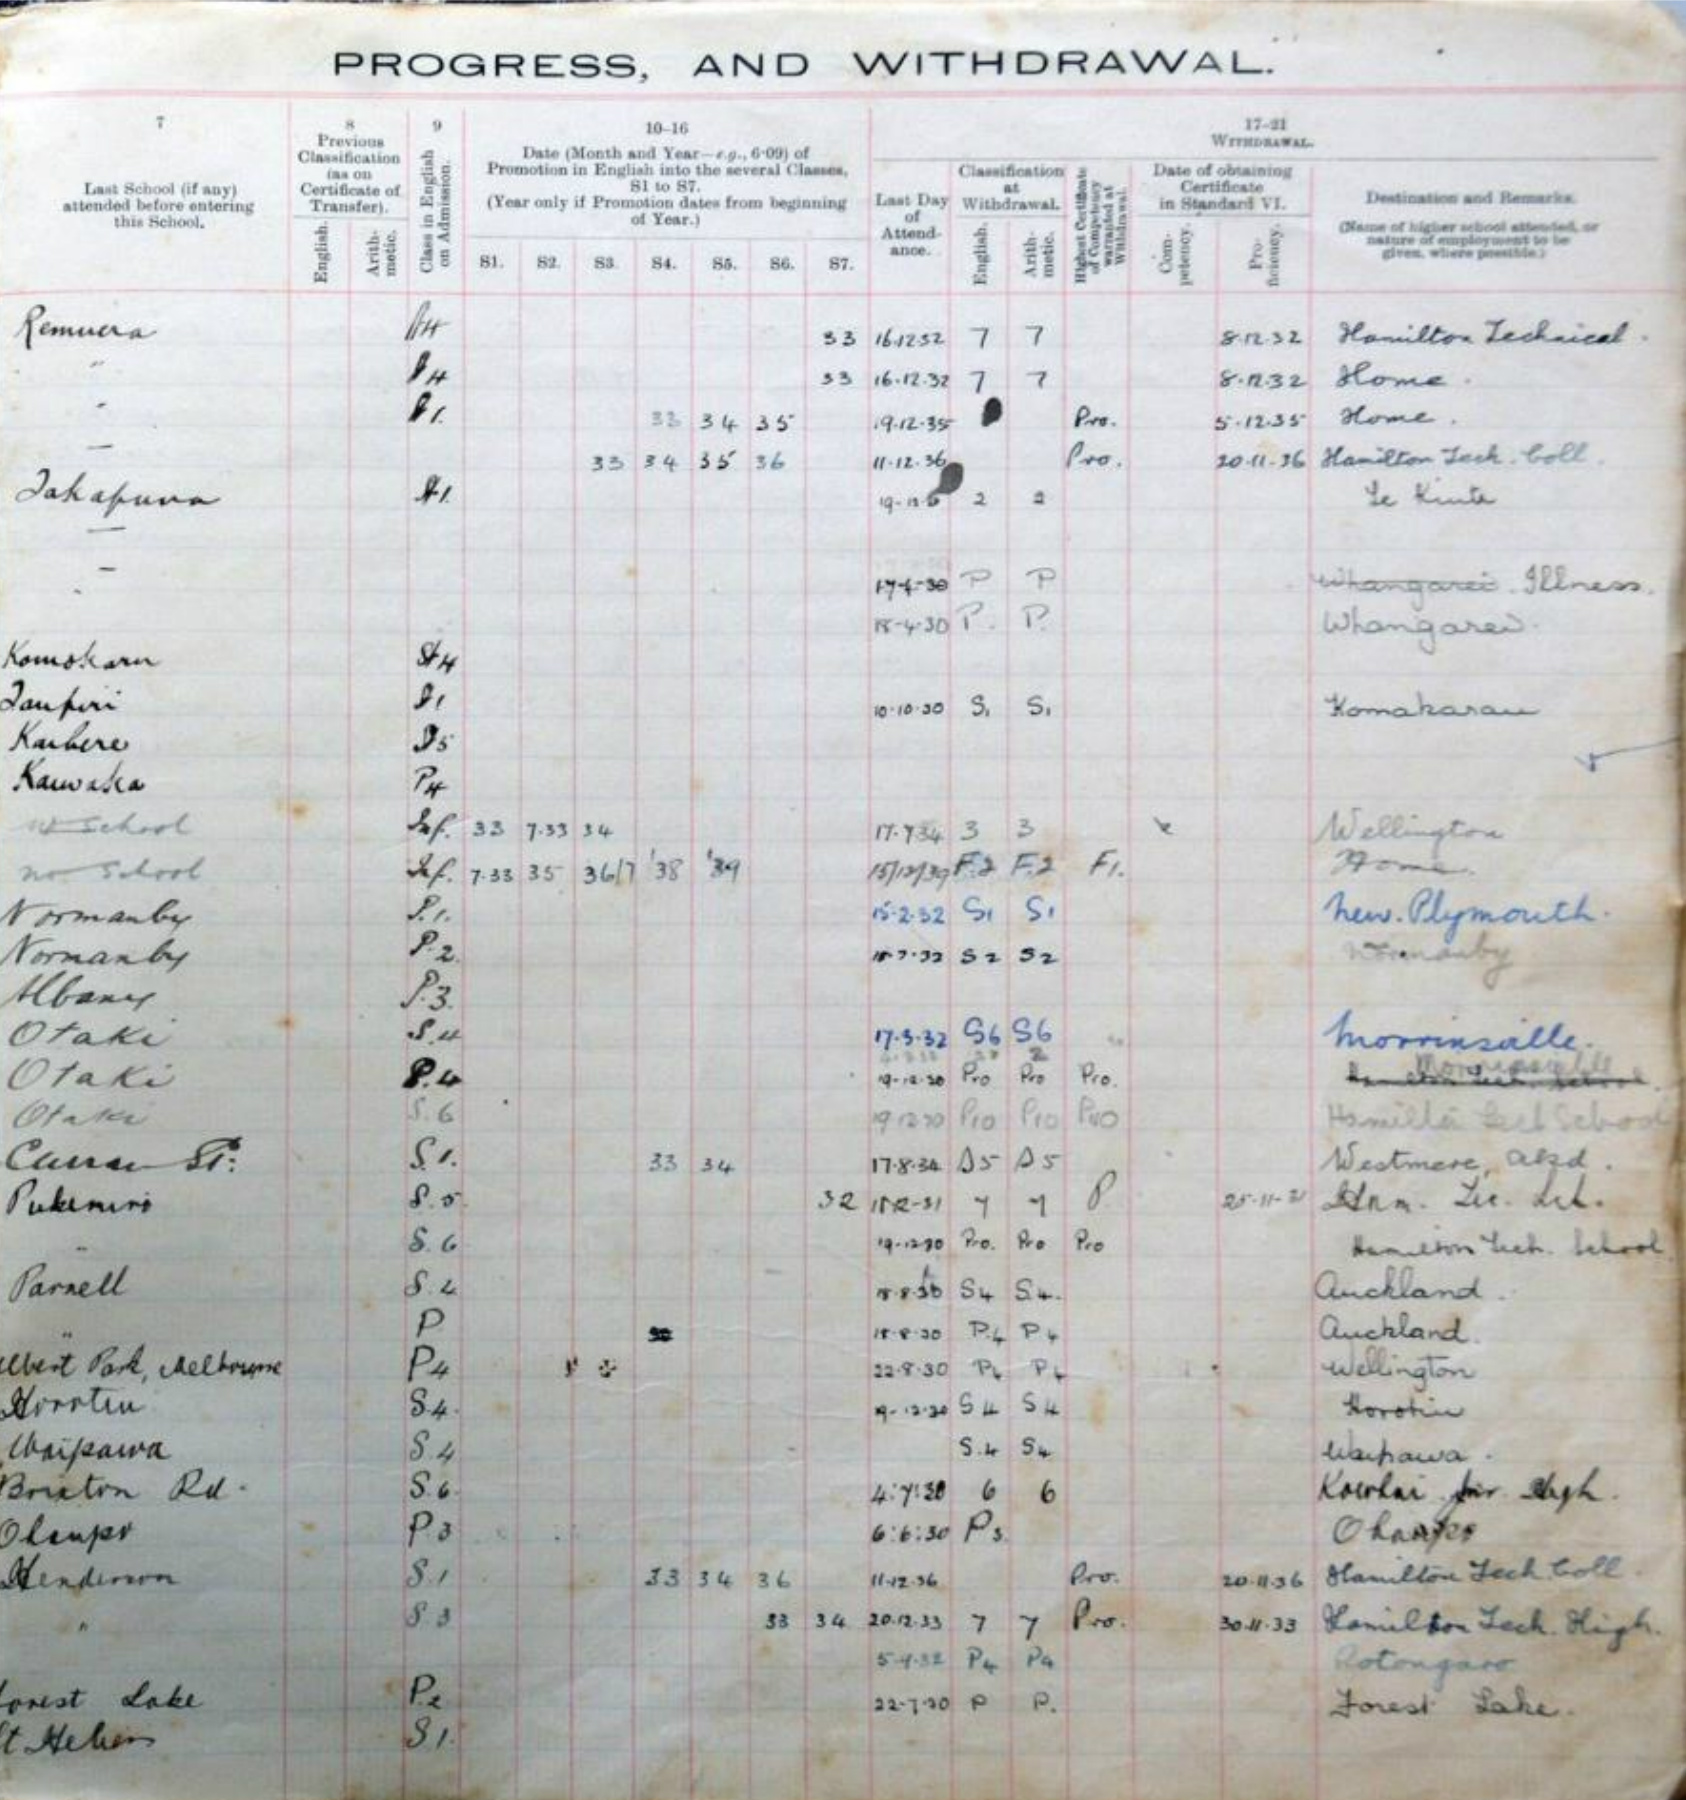 PROGRESS, AND WITHDRAWAL.
7 8 9 10-16 17-21
Last School (if any) attended before entering this School.
Previous Classification (as on Certificate of Transfer).
English. Arithmetic.
Class in English on Admission.
Date (Month and Year—e.g., 6·09) of Promotion in English into the several Classes, S1 to S7.
(Year only if Promotion dates from beginning of Year.)
S1. S2. S3. S4. S5. S6. S7.
WITHDRAWAL.
Last Day of Attendance.
Classification at Withdrawal.
English. Arithmetic.
Highest Certificate of Competency warranted at Withdrawal.
Date of obtaining Certificate in Standard VI.
Competency. Proficiency.
Destination and Remarks.
(Name of higher school attended, or nature of employment to be given, where possible.)
Remuera 33 16.12.32 7 7 8.12.32 Hamilton Technical.
" 33 16.12.32 7 7 8.12.32 Home.
33 34 35 19.12.35 Pro. 5.12.35 Home.
33 34 35 36 11.12.36 Pro. 20.11.36 Hamilton Tech. Coll.
Takapuna 2 2 Te Kuite
P P Whangarei. Illness.
18-4-30 P. P. Whangarei.
Komokarau
Taupiri 10.10.30 S1 S1 Komakarau
Kaihere
Kawaka P4
no School Inf. 33 7.33 34 17.7.34 3 3 Wellington
no School Inf. 7.33 35 36/7 '38 '39 15/12/39 F.2 F.2 F1. Home.
Normanby P.1. 15.2.32 S1 S1 New. Plymouth.
Normanby P.2. S2 S2 Normanby
Albany P.3.
Otaki S.4 17.3.32 S6 S6 Morrinsville.
Otaki P.4 19.12.30 Pro Pro Pro.
Otaki S.6 19.12.30 Pro Pro Pro Hamilton Tech School
Curran St. S.1. 33 34 17.8.34 S5 S5 Westmere, Akld.
Pukemiro S.5. 32 7 7 P. 25-11-31 Ham. Tec.
" S.6 19.12.30 Pro. Pro Pro Hamilton Tech. School
Parnell S.4 18.8.30 S4 S4. Auckland.
" P 18.8.30 P.4 P4 Auckland.
Albert Park, Melbourne P4 22.8.30 P4 P4 Wellington
Horotiu S4. 19-12.30 S4 S4 Horotiu
Waipawa S.4 S.4 S4 Waipawa.
Brixton Rd. S.6. 4:7:30 6 6 Kowhai Jnr High.
Ohaupo P3 6:6:30 P3 Ohaupo
Henderson S.1 33 34 36 11.12.36 Pro. 20.11.36 Hamilton Tech Coll.
" S.3 33 34 20.12.33 7 7 Pro. 30.11.33 Hamilton Tech. High.
P4 P4 Rotongaro
Forest Lake 22.7.30 P P. Forest Lake.
St Heliers S1.